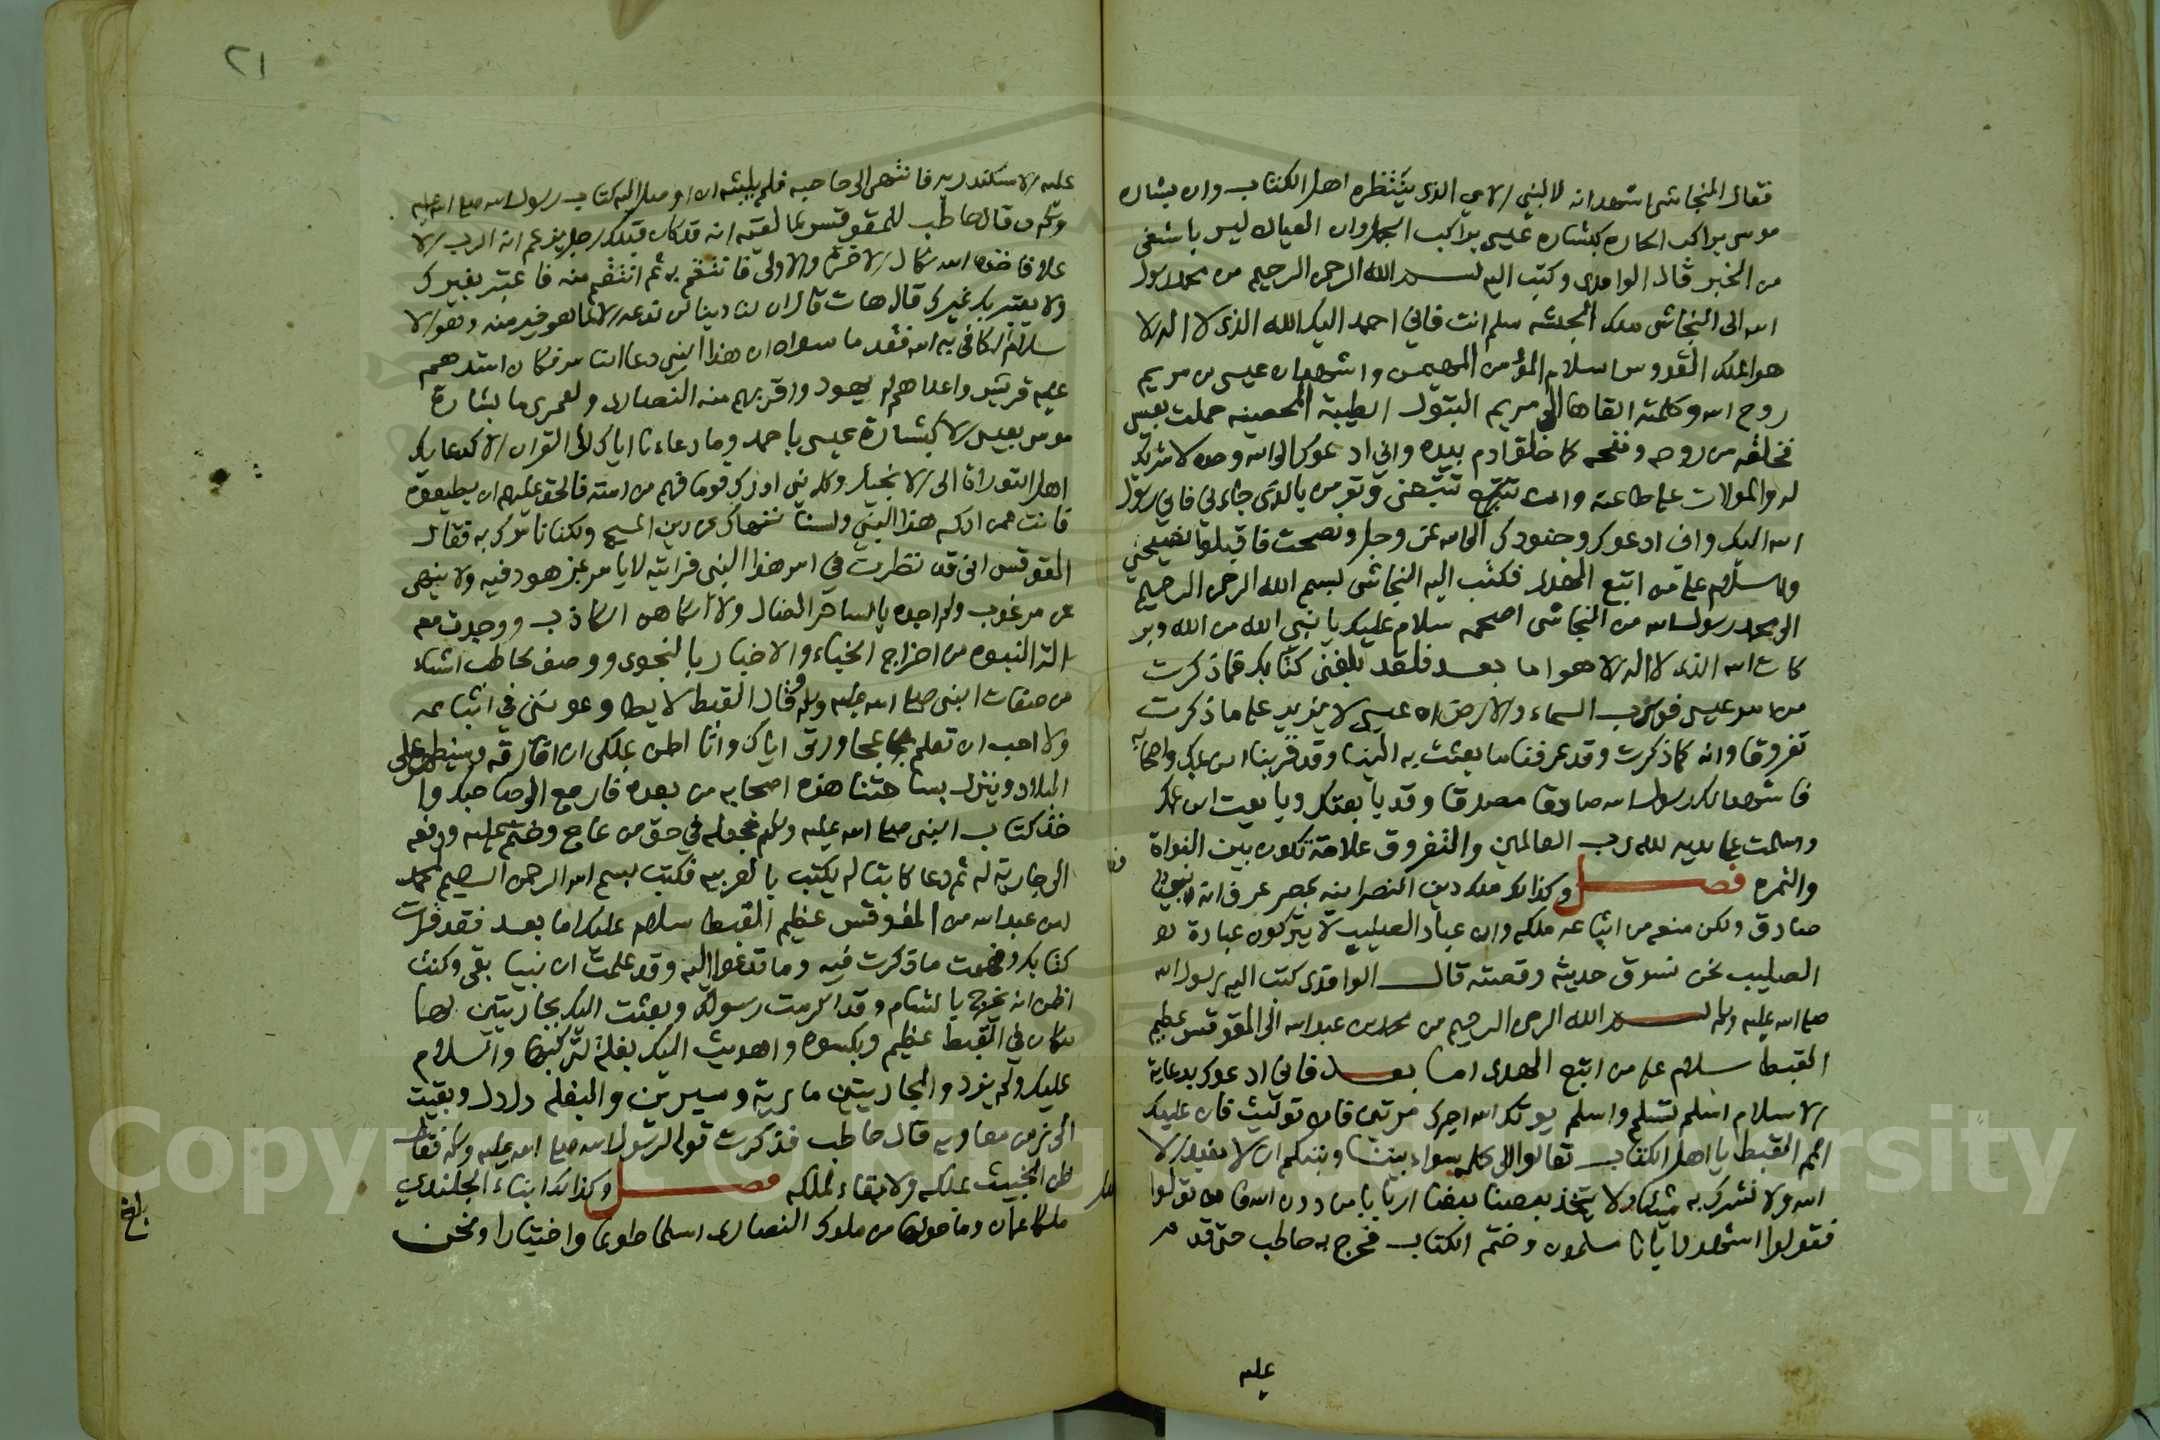 فقال النجاشي اشهد انه لالنبي الامي الذي ينتظره اهل الكتاب وان بشاره
موسى براكب الحماره كبشاره عيسى براكب الجمل وان العيان ليس باشفى
من الخبر قال الواقدي وكتب اليه بسم الله الرحمن الرحيم من محمد رسول
الله الى النجاشي ملك الحبشه سلم انت فاني احمد اليك الله الذي لا اله الا
هو الملك القدوس السلام المؤمن المهيمن واشهد ان عيسى بن مريم
روح الله وكلمته القاها الى مريم البتول الطيبة المحصينه حملت بعيسى
فخلقه من روحه ونفخه كما خلق ادم بيده واني ادعوك الى الله وحده لا شريك
له والموالات على طاعته وان تتبعني وتؤمن بالذي جاءني فاني رسول
الله اليك واني ادعوك وجنودك الى الله عز وجل ونصحت فاقبلوا نصيحتي
والسلام على من اتبع الهدى فكتب اليه النجاشي بسم الله الرحمن الرحيم
الى محمد رسول الله من النجاشي اصحمه سلام عليك يا نبي الله من الله وبر
كات الله الذي لا اله الا هو اما بعد فلقد بلغني كتابك فما ذكرت
من امر عيسى فورب السماء والارض ان عيسى لا يزيد على ما ذكرت
تفروقا وانه كما ذكرت وقد عرفنا ما بعثت به الينا وقد قربنا ابن عمك واصحابه
فاشهد انك رسول الله صادقا مصدقا وقد بايعتك وبايعت ابن عمك
واسلمت على يديه لله رب العالمين والتفروق علاقة تكون بين النواة
والتمره فصل وكذلك ملك دين النصرانيه بمصر عرف انه نبي
صادق ولكن منعه من اتباعه ملكه وان عباد الصليب لا يتركون عبادة
الصليب نحن نسوق حديثه وقصته قال الواقدي كتب اليه رسول الله
صلى الله عليه وسلم بسم الله الرحمن الرحيم من محمد بن عبد الله الى المقوقس عظيم
القبط سلام على من اتبع الهدى اما بعد فاني ادعوك بدعاية
الاسلام اسلم تسلم واسلم يوتك الله اجرك مرتين فان توليت فان عليك
اثم القبط يا اهل الكتاب تعالوا الى كلمه سواء بيننا وبينكم ان لا نعبد الا
الله ولا نشرك به شيئا ولا يتخذ بعضنا بعضا اربابا من دون الله فان تولوا
فقولوا اشهدوا بانا مسلمون وختم الكتاب فخرج به حاطب حتى قدم
عليه
٢١
عليه الاسكندريه فانتهى الى حاجبه فلم يلبثه ان اوصل اليه كتاب رسول الله صلى الله عليه
وسلم وقال حاطب للمقوقس لما لقيه انه قد كان قبلك رجل يزعم انه الرب الا
على فاخذه الله نكال الاخره والاولى فانتقم به ثم انتقم منه فاعتبر بغيرك
ولا يعتبر بك غيرك قال هات قال ان لنا دينا لن ندعه الا لما هو خير منه وهو الا
سلام الكافي به الله فقد ما سواه ان هذا النبي دعا الناس فكان اشدهم
عليه قريش واعداهم له يهود واقربهم منه النصارى ولعمري ما بشارة
موسى بعيسى الا كبشارة عيسى باحمد وما دعاءنا اياك الى القران الا كدعايك
اهل التوراة الى الانجيل وكل نبي ادرك قوما فهم من امته فالحق عليهم ان يطيعوه
فانت ممن ادركه هذا النبي ولسنا ننهاك عن دين المسيح ولكنا نامرك به فقال
المقوقس اني قد نظرت في امر هذا النبي فرايته لا يامر بمزهود فيه ولا ينهى
عن مرغوب ولم اجده بالساحر الضال ولا الكاهن الكاذب ووجدت معه
الة النبوه من اخراج الخباء والاخبار بالنجوى ووصف لحاطب اشياء
من صفات النبي صلى الله عليه وسلم وقال القبط لا يطاوعونني في اتباعه
ولا احب ان تعلم بمحاورتي اياك وانا اظن بملكي ان افارقه وسيظهر على
البلاد وينزل بساحتنا هذه اصحابه من بعده فارجع الى صاحبك وا
خذ كتاب النبي صلى الله عليه وسلم فجعله في حق من عاج وختم عليه ودفعه
الى جاريه له ثم دعا كاتبا له يكتب بالعربيه فكتب بسم الله الرحمن الرحيم لمحمد
بن عبد الله من المقوقس عظيم القبط سلام عليك اما بعد فقد قرات
كتابك وفهمت ما ذكرت فيه وما تدعوا اليه وقد علمت ان نبيا بقي وكنت
اظن انه يخرج بالشام وقد اكرمت رسولك وبعثت اليك بجاريتين لهما
مكان في القبط عظيم وبكسوه واهديت اليك بغلة لتركبها والسلام
عليك ولم يزد والجاريتين مارية وسيرين والبغله دلدل وبقيت
الى زمن معاويه قال حاطب فذكرت قوله لرسول الله صلى الله عليه وسلم فقال
ظن الخبيث بملكه ولا بقاء لملكه فصل وكذلك ابناء الجلندي
ملكا عمان وما حولها من ملوك النصارى اسلما طوعا واختيارا ونحن
بلغ
Copyright © King Saud University